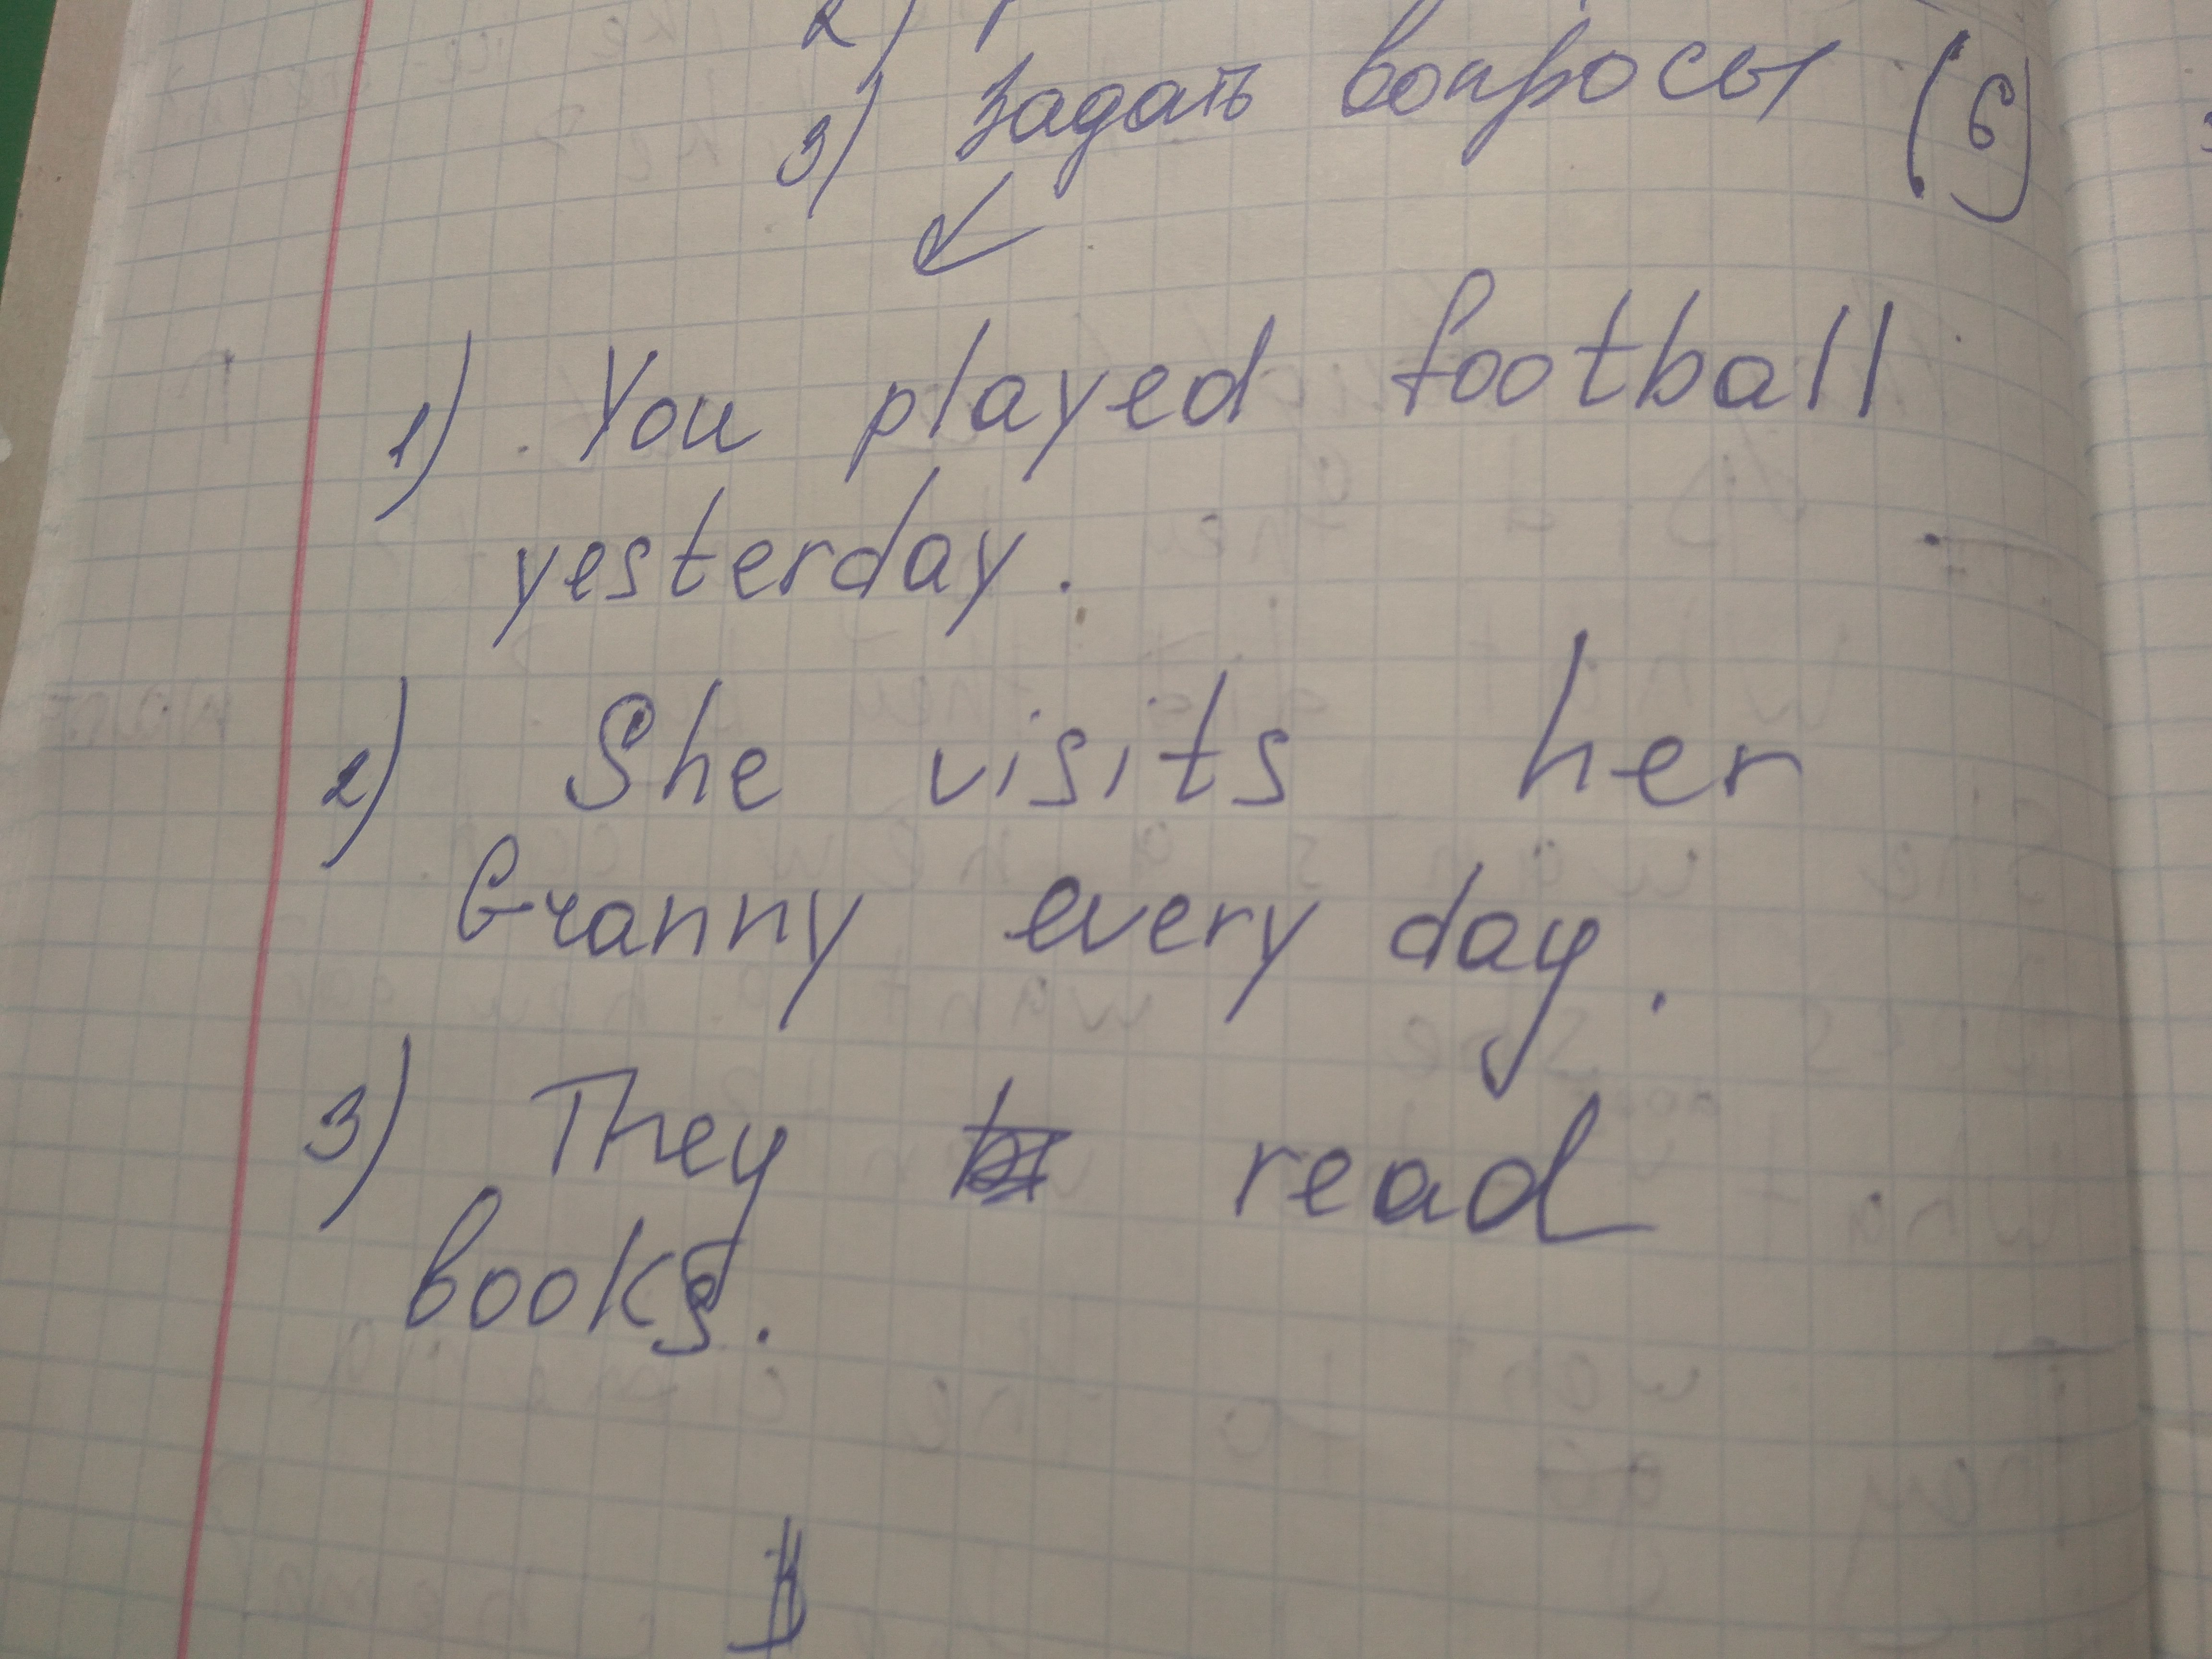 2)
3) Задать вопросы (6)
1) You played football
yesterday.
2) She visits her
Granny every day.
3) They read
books.